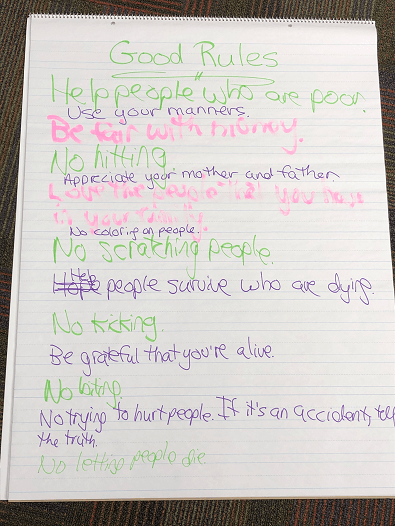 Good Rules
Help people who are poor.
Use your manners.
Be fair with money.
No hitting.
Appriciate your mother and father
Love the people that you have
in your family.
No coloring on people.
No scratching people.
Help
Hope people survive who are dying.
No kicking.
Be grateful that you're alive.
No biting.
No trying to hurt people. If it's an accident, tell
the truth.
No letting people die